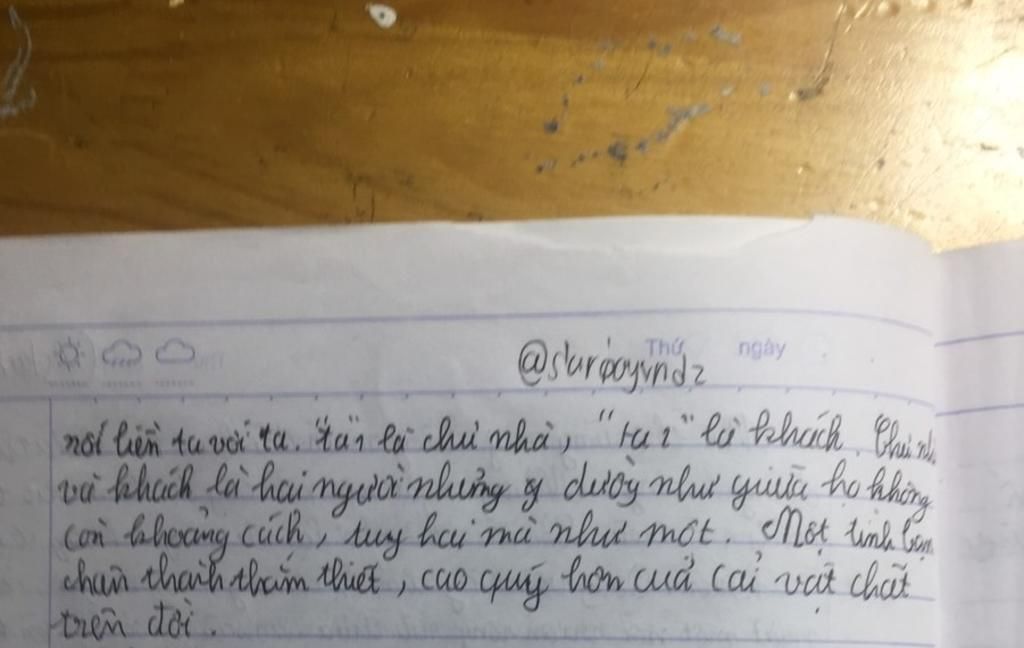 Thứ ngày
nối liền ta với ta. "ta"1 là chủ nhà, "ta 2" là khách. Chủ nhà
và khách là hai người nhưng dường như giữa họ không
còn khoảng cách, tuy hai mà như một. Một tình bạn
chân thành thắm thiết, cao quý hơn cuả cải vật chất
trên đời.